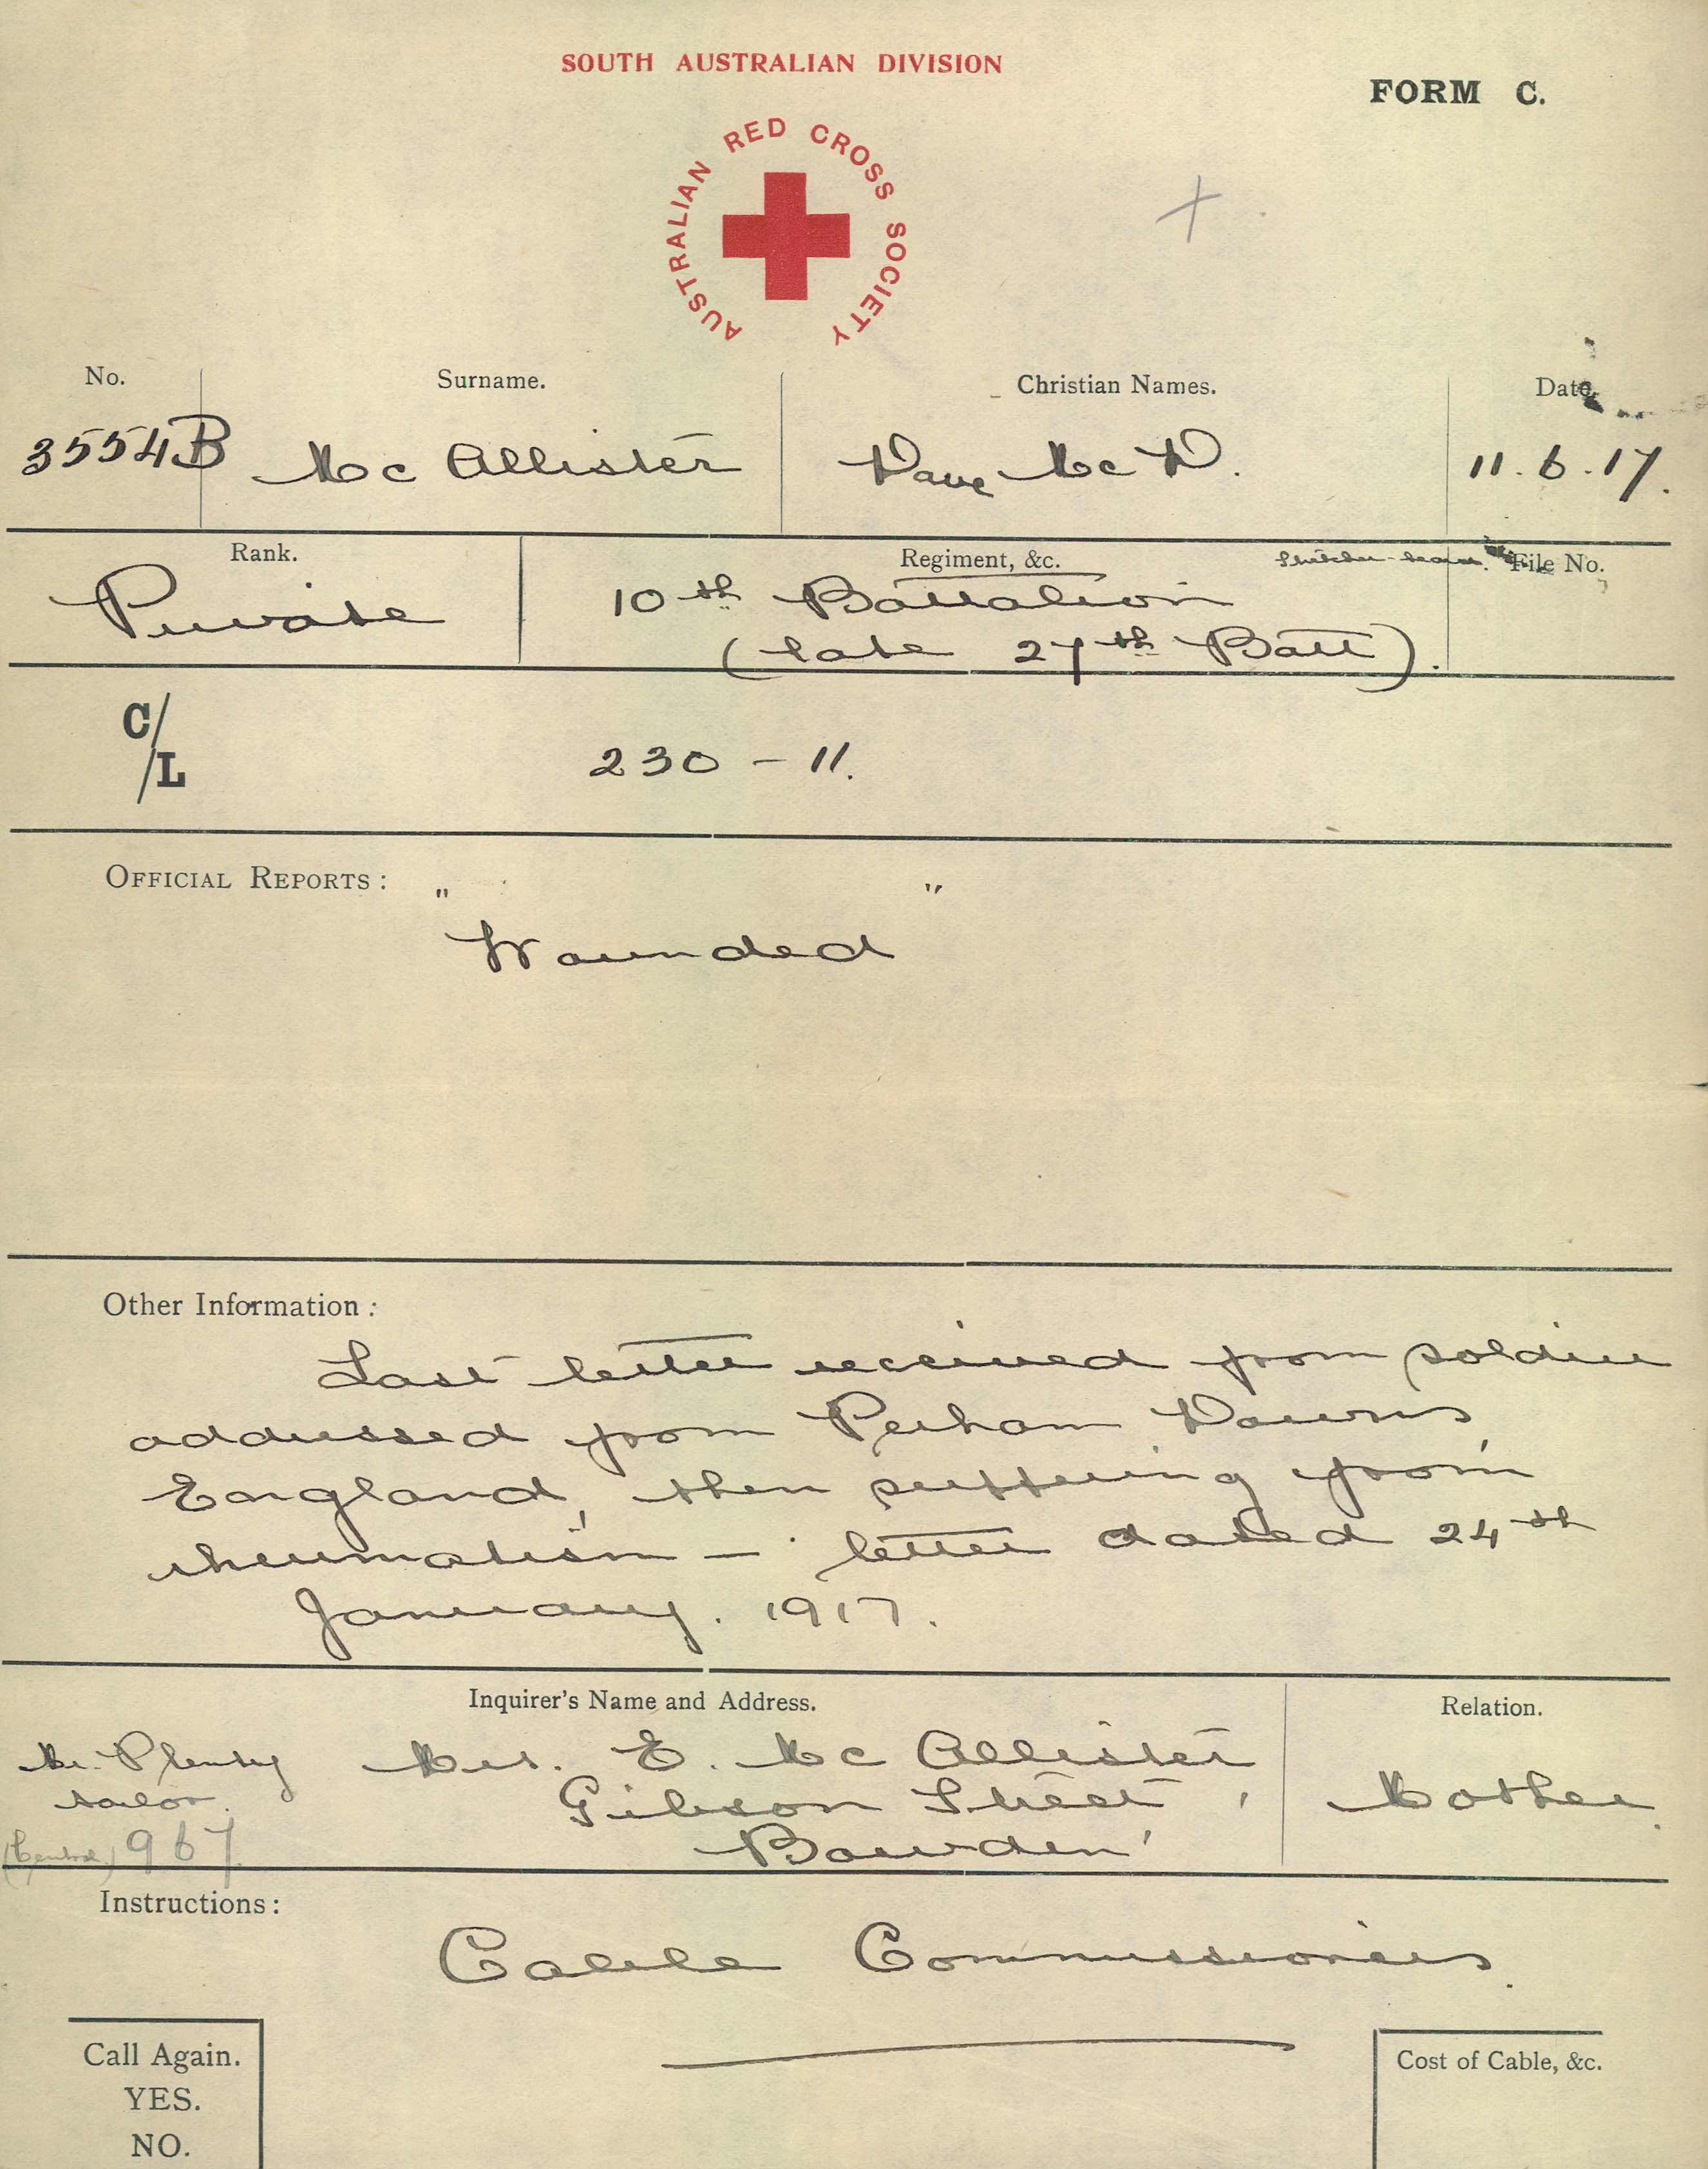 SOUTH AUSTRALIAN DIVISION
FORM C.
AUSTRALIAN RED CROSS SOCIETY
No. Surname. Christian Names. Date.
3554B Mc Allister Dave Mc D. 11.6.17.
Rank. Regiment, &c. Stretcher-bearer. File No.
Private 10th Battalion
(late 27th Batt).
C/L 230 - 11.
OFFICIAL REPORTS: " "
Wounded
Other Information:
Last letter received from soldier
addressed from Perham Downs,
England, then suffering from
rheumatism — letter dated 24th
January. 1917.
Inquirer's Name and Address. Relation.
Mr. Plenty Mrs. E. Mc Allister
tailor. Gibson Street, Mother.
(Central) 967. Bowden
Instructions:
Cable Commissioners.
Call Again. Cost of Cable, &c.
YES.
NO.